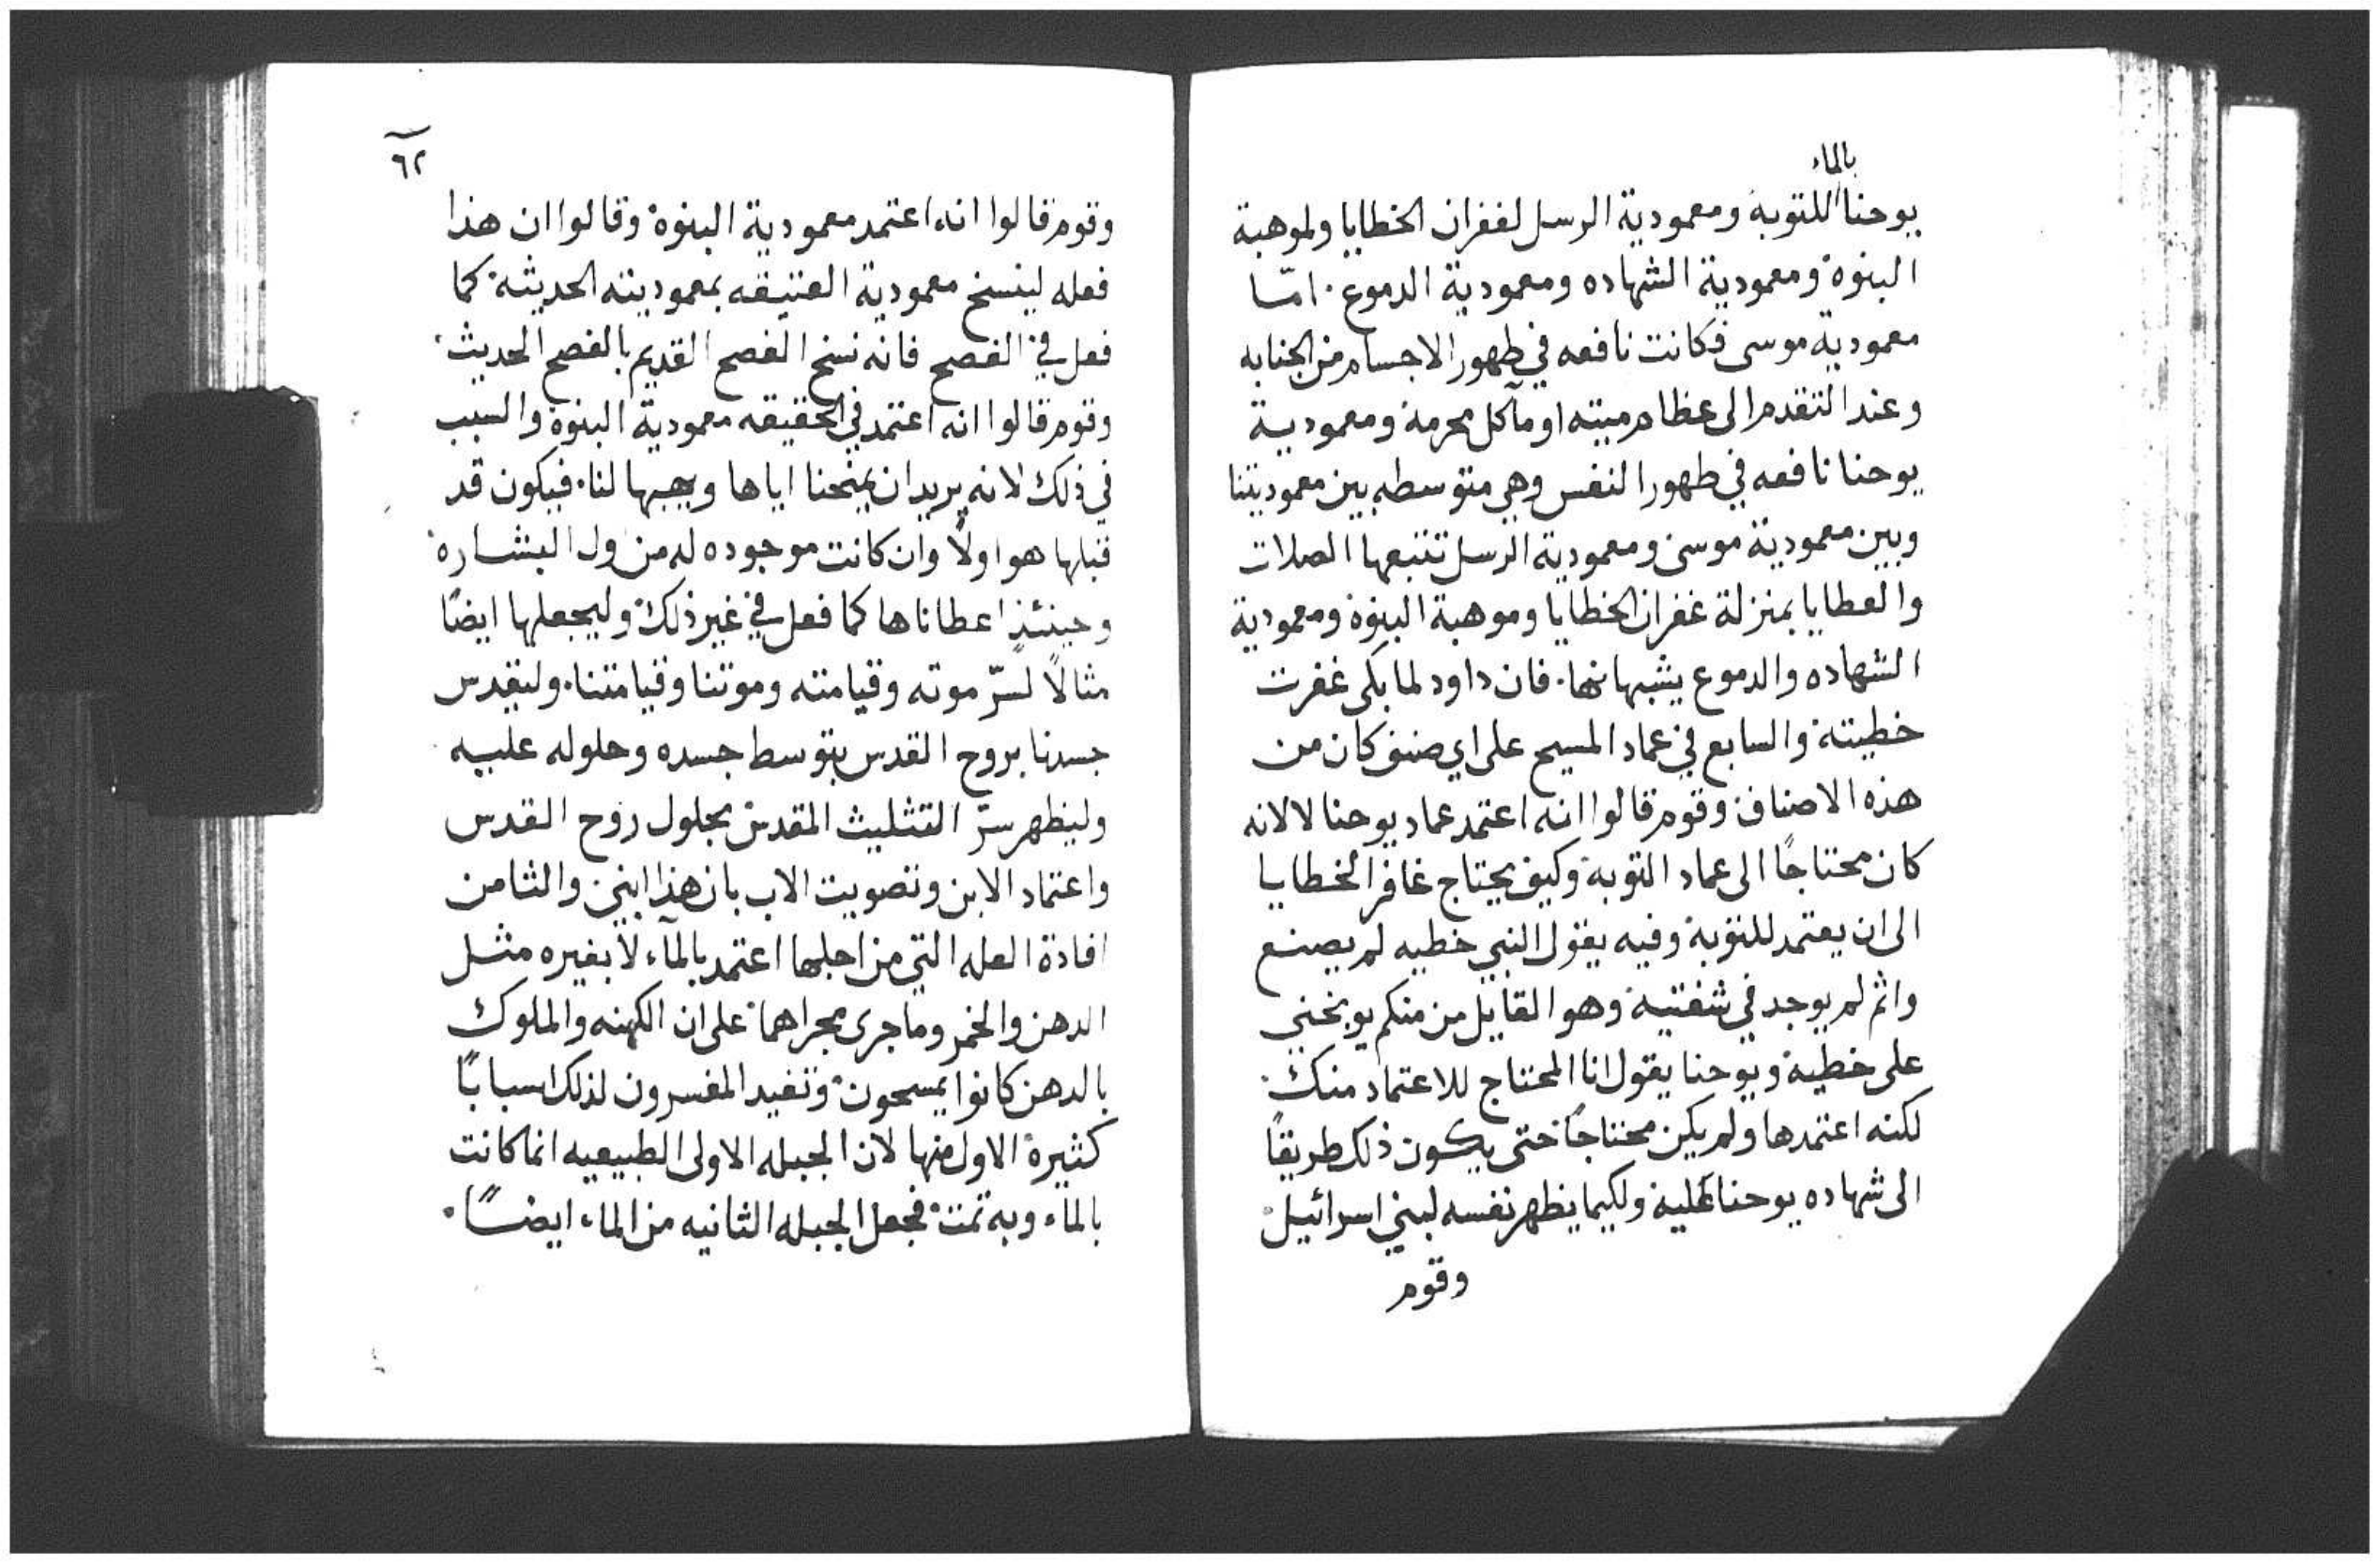 بالماء
يوحنا للتوبة ومعمودية الرسل لغفران الخطايا ولموهبة
البنوة ومعمودية الشهاده ومعمودية الدموع. امّا
معمودية موسى فكانت نافعه في طهور الاجسام من الجنابه
وعند التقدم الى عظام ميته او مآكل محرمة ومعمودية
يوحنا نافعه في طهور النفس وهي متوسطه بين معموديتنا
وبين معمودية موسى ومعمودية الرسل تتبعها الصلات
والعطايا بمنزلة غفران الخطايا وموهبة البنوة ومعمودية
الشهاده والدموع يشبهانها. فان داود لما بكى غفرت
خطيته والسابع في عماد المسيح على اي صنف كان من
هذه الاصناف وقوم قالوا انه اعتمد عماد يوحنا لا لانه
كان محتاجًا الى عماد التوبة وكيف يحتاج غافر الخطايا
الى ان يعتمد للتوبة وفيه يقول النبي خطيه لم يصنع
واثم لم يوجد في شفتيه وهو القايل من منكم يوبخني
على خطية ويوحنا يقول انا المحتاج للاعتماد منك.
لكنه اعتمدها ولم يكن محتاجًا حتى يكون ذلك طريقًا
الى شهاده يوحنا عليه ولكيما يظهر نفسه لبني اسرائيل
وقوم
٦٢
وقوم قالوا انه اعتمد معمودية البنوة وقالوا ان هذا
فعله لينسخ معمودية العتيقه بمعموديته الحديثة كما
فعل في الفصح فانه نسخ الفصح القديم بالفصح الحديث
وقوم قالوا انه اعتمد في الحقيقه معمودية البنوة والسبب
في ذلك لانه يريد ان يمنحنا اياها ويهبها لنا. فيكون قد
قبلها هو اولًا وان كانت موجوده له من اول البشارة
وحينئذٍ اعطاناها كما فعل في غير ذلك وليجعلها ايضًا
مثالًا لسّر موته وقيامته وموتنا وقيامتنا. وليقدس
جسدنا بروح القدس بتوسط جسده وحلوله عليه
وليظهر سرّ التثليث المقدس بحلول روح القدس
واعتماد الابن وتصويت الاب بان هذا ابني والثامن
افادة العله التي من اجلها اعتمد بالمآء لا بغيره مثل
الدهن والخمر وما جرى مجراهما على ان الكهنه والملوك
بالدهن كانوا يمسحون وتفيد المفسرون لذلك اسبابًا
كثيرة الاول منها لان الجبله الاولى الطبيعيه انما كانت
بالماء وبه تمت فجعل الجبله الثانيه من الماء ايضًا.